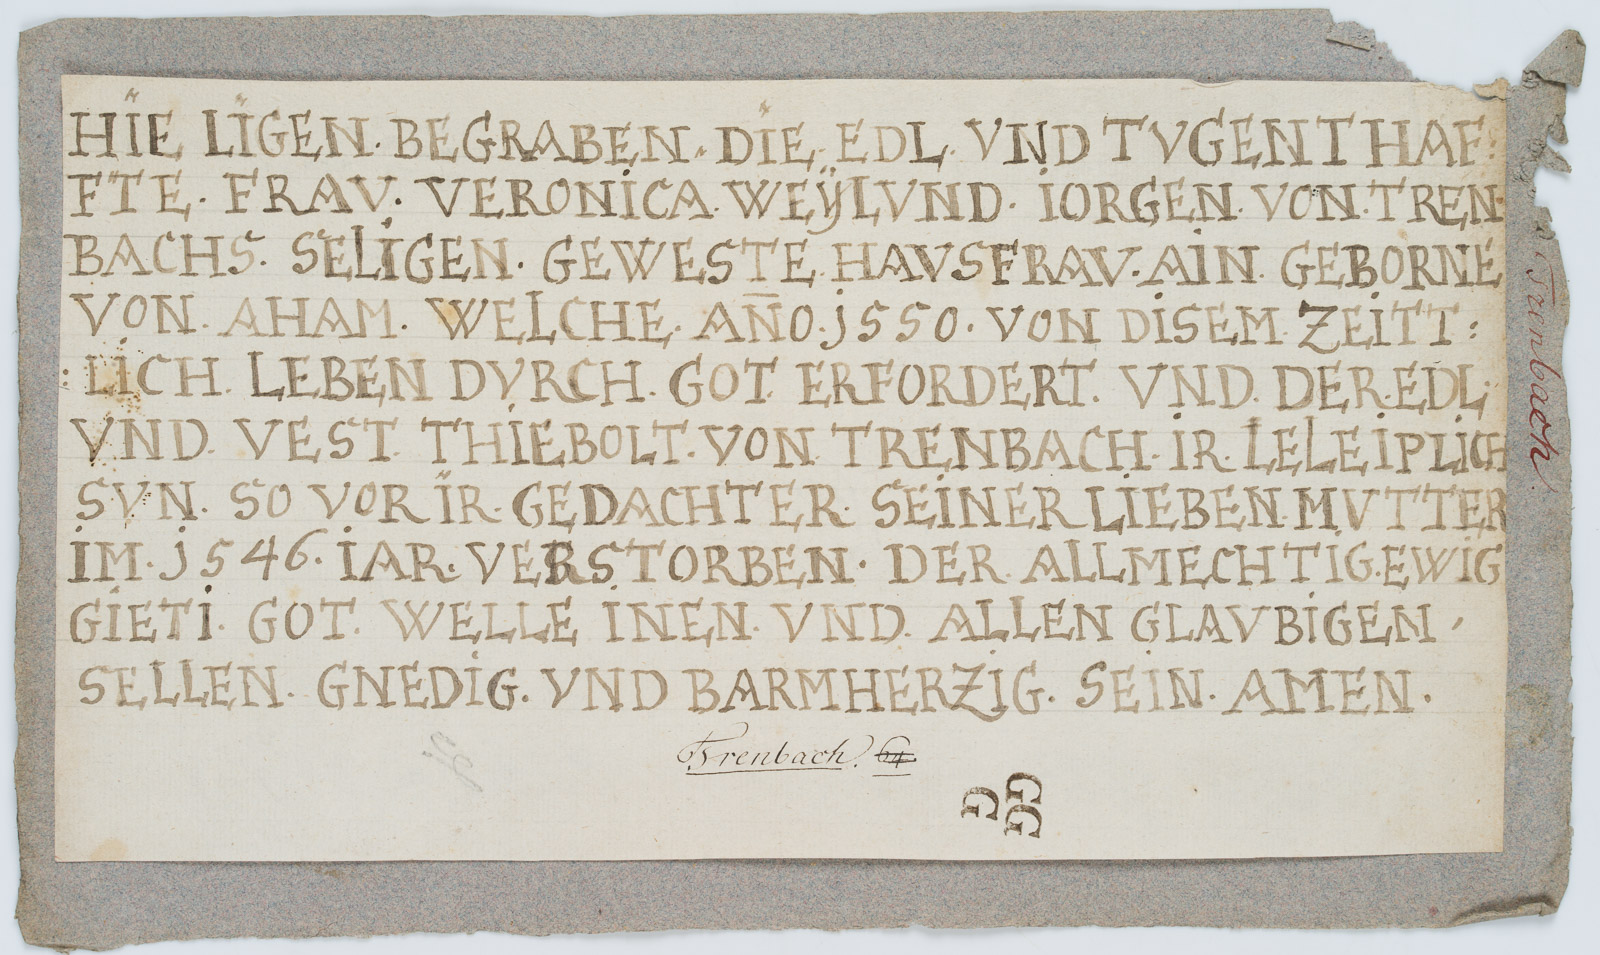 HIE LIGEN. BEGRABEN. DIE. EDL. VND TVGENTHAF:
FTE. FRAV. VERONICA. WEŸLVND. IORGEN. VON. TREN
BACHS. SELIGEN. GEWESTE. HAVSFRAV. AIN. GEBORNE
VON. AHAM. WELCHE. AÑO. j550. VON DISEM. ZEITT:
:LICH. LEBEN DVRCH. GOT. ERFORDERT. VND. DER. EDL.
VND. VEST. THIEBOLT. VON. TRENBACH. IR. LELEIPLICH
SVN. SO VOR ÏR. GEDACHTER. SEINER LIEBEN. MVTTER
IM. j546. IAR. VERSTORBEN. DER. ALLMECHTIG. EWIG
GIETI. GOT. WELLE INEN. VND. ALLEN GLAVBIGEN
SELLEN. GNEDIG. VND BARMHERZIG. SEIN. AMEN.
Trenbach. 64
G G G
Trenbach.